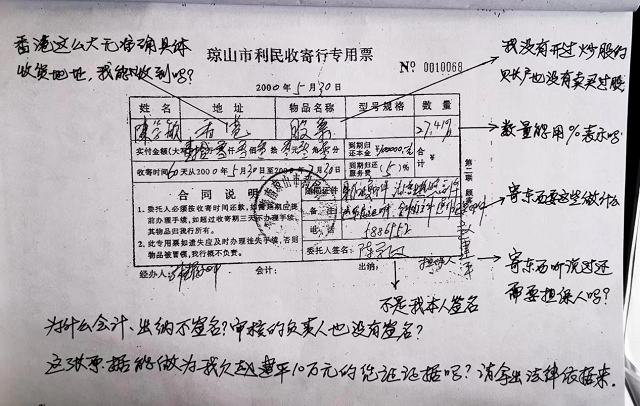 香港这么大无准确具体
收货地址，我能收到吗？
琼山市利民收寄行专用票
Nº 0010068
我没有开过炒股的
账户也没有卖买过股
2000年5月30日
姓名 地址 物品名称 型号规格 数量
香港 股票 27.41%
实付金额(大
到期归还本金
合计 ¥
收寄时间60天从2000年5月30日至2000年7月30日
到期归还服务费 (5)%
数量能用%表示吗
合同说明
1、委托人必须按收寄时间还款，如需延期应提
前办理手续，如超过收寄期三天不办理手续，
其物品归我行所有。
2、此专用票如遗失应及时办理挂失手续，否则
物品被冒领，我行概不负责。
备注
电话 5886752
委托人签名：
经办人： 会计： 出纳： 担保人
寄东西要这些做什么
寄东西听说过还
需要担保人吗？
不是我本人签名
为什么会计、出纳不签名？审核的负责人也没有签名？
这张票据能做为我欠赵建平10万元的凭证证据吗？请拿出法律依据来.